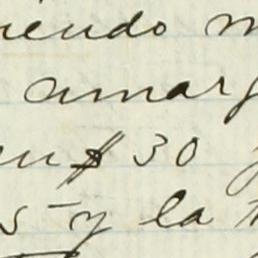 iendo m
amarg
en $30 y
5 y la